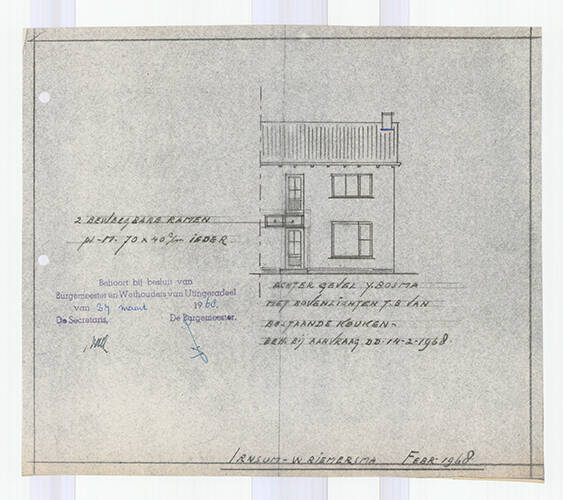 2 BEWEEGBARE RAMEN
pl.m. 70 x 40 c/m IEDER
Behoort bij besluit van
Burgemeester en Wethouders van Utingeradeel
van 27 maart 1968.
De Secretaris, De Burgemeester.
ACHTER GEVEL Y. BOSMA
MET BOVENLICHTEN T.B. VAN
BESTAANDE KEUKEN-
BEH. BIJ AANVRAAG DD. 14-2-1968.
IRNSUM - W. RIEMERSMA FEBR 1968